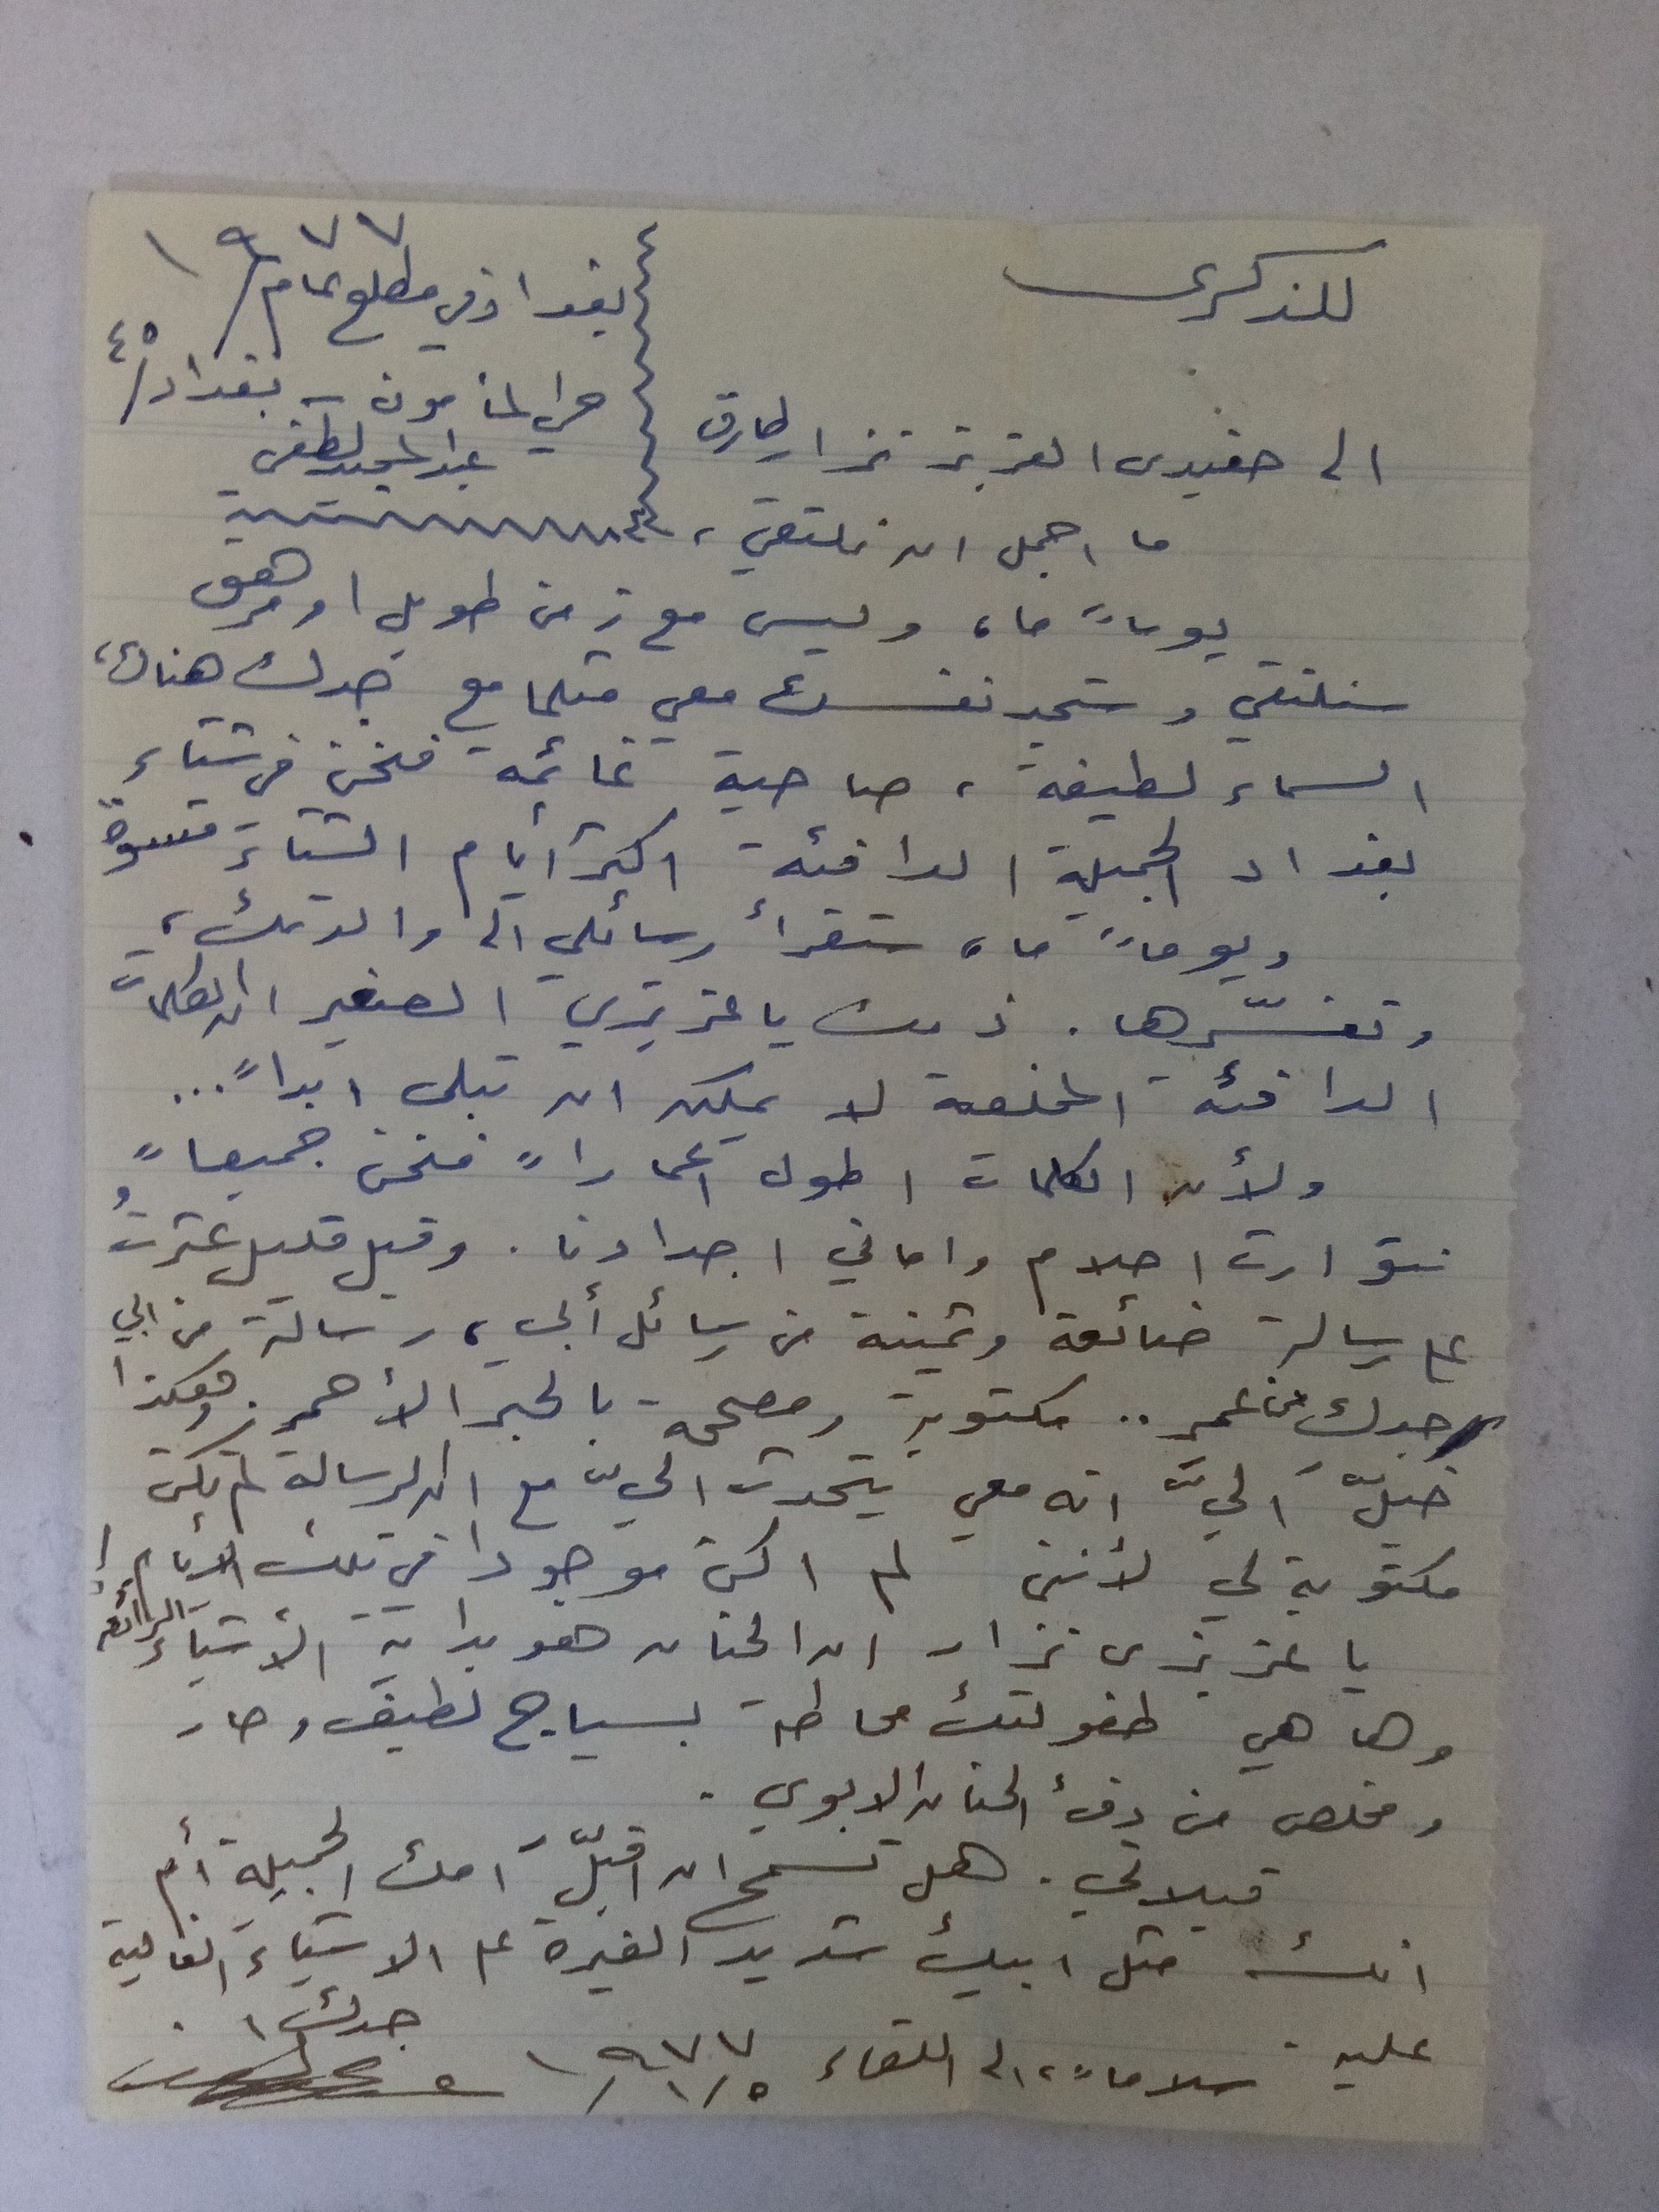 للذكرى
بغداد في مطلع عام / ١٩٧٧
حي المأمون - بغداد / ٤٥
عبد المجيد لطفي
الى حفيدى العزيز نزار طارق
ما اجمل ان نلتقي ،
يوماً ما ، وليس مع زمن طويل او مرهق
سنلتقي وستجد نفسك معي مثلما مع جدك هناك ،
السماء لطيفة ، صاحية غائمة فنحن في شتاء
بغداد الجميلة الدافئة اكثر أيام الشتاء قسوةً
ويوماً ما ، ستقرأ رسائلي الى والدتك ،
وتفسّرها . ذلك يا عزيزي الصغير ان الكلمات
الدافئة المخلصة لا يمكن ان تبلى ابداً ...
ولأن الكلمات اطول اعماراً فنحن جميعاً
نتوارث احلام واماني اجدادنا . وقبل قليل عثرتُ
على رسالة ضائعة وثمينة من رسائل أبي ، رسالة من ابي
جدك من عمر .. مكتوبة ومصححة بالحبر الأحمر . وهكذا
خيّل اليّ انه معي يتحدث اليّ مع ان الرسالة لم تكن
مكتوبة لي لأنني لم اكن موجودا في تلك الأيام !
يا عزيزى نزار ان الحنان هو بداية الأشياء الرائعة
وها هي طفولتك محاطة بسياج لطيف وحار
ومخلص من دفء الحنان الابوي .
قبلاتي . هل تسمح ان اقبّل امك الجميلة أم
انك مثل ابيك شديد الغيرة على الاشياء الغالية
عليه سلاماً ، الى اللقاء ٥/١/١٩٧٧
جدك ١ .